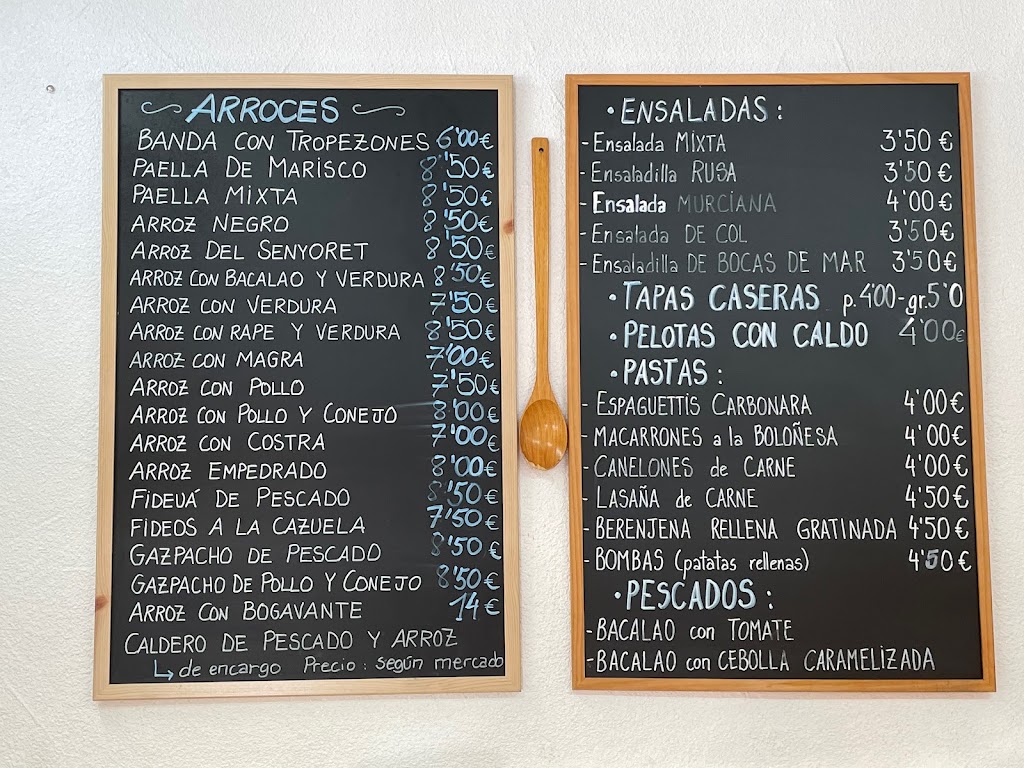 ARROCES
BANDA CON TROPEZONES 6'00€
PAELLA DE MARISCO 8'50€
PAELLA MIXTA 8'50€
ARROZ NEGRO 8'50€
ARROZ DEL SENYORET 8'50€
ARROZ CON BACALAO Y VERDURA 8'50€
ARROZ CON VERDURA 7'50€
ARROZ CON RAPE Y VERDURA 8'50€
ARROZ CON MAGRA 7'00€
ARROZ CON POLLO 7'50€
ARROZ CON POLLO Y CONEJO 8'00€
ARROZ CON COSTRA 7'00€
ARROZ EMPEDRADO 8'00€
FIDEUÁ DE PESCADO 8'50€
FIDEOS A LA CAZUELA 7'50€
GAZPACHO DE PESCADO 8'50€
GAZPACHO DE POLLO Y CONEJO 8'50€
ARROZ CON BOGAVANTE 14€
CALDERO DE PESCADO Y ARROZ
↳ de encargo Precio: según mercado
• ENSALADAS:
- Ensalada MIXTA 3'50€
- Ensaladilla RUSA 3'50€
- Ensalada MURCIANA 4'00€
- Ensalada DE COL 3'50€
- Ensaladilla DE BOCAS DE MAR 3'50€
• TAPAS CASERAS p.4'00-gr.5'0
• PELOTAS CON CALDO 4'00€
• PASTAS:
- ESPAGUETTIS CARBONARA 4'00€
- MACARRONES a la BOLOÑESA 4'00€
- CANELONES de CARNE 4'00€
- LASAÑA de CARNE 4'50€
- BERENJENA RELLENA GRATINADA 4'50€
- BOMBAS (patatas rellenas) 4'50€
• PESCADOS:
- BACALAO con TOMATE
- BACALAO con CEBOLLA CARAMELIZADA